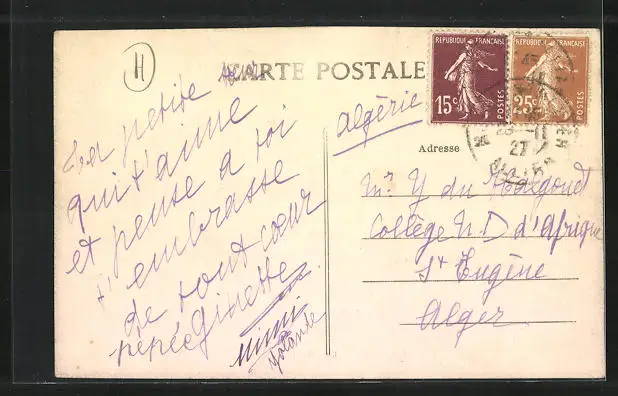 H
CARTE POSTALE
REPUBLIQUE FRANÇAISE
15c
POSTES
REPUBLIQUE FRANÇAISE
25c
POSTES
27
Algérie
Adresse
La petite
qui t'aime
et pense a toi
t'embrasse
de tout cœur
pépée Ginette
Mimi
Yolande
Mr Y du
Collège N. D d'Afrique
St Eugène
Alger